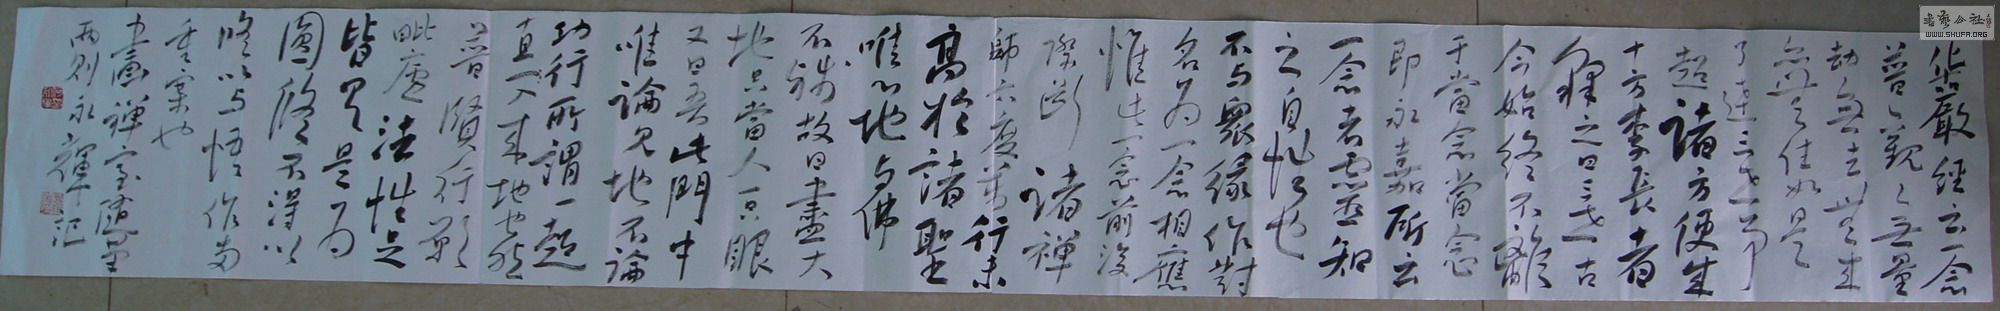 華嚴經云一念
普觀無量
劫無去無來
亦無住如是
了達三世事
超諸方便成
十方李長者
釋之曰三世古
今始終不離
于當念當念
即永嘉所云
一念者靈知
之自性也
不与眾緣作對
名為一念相應
惟此一念前後
際斷諸禪
師六度萬行未
高於諸聖
唯心地与佛
不殊故曰盡大
地只當人一只眼
又曰吾此門中
唯論見地不論
功行所謂一超
直入来地也然
普賢行願
毗盧法性足
皆是為
圓修不得以
修以与悟作
重案也
畫禪室隨筆
兩則永
书艺公社
WWW.SHUFA.ORG